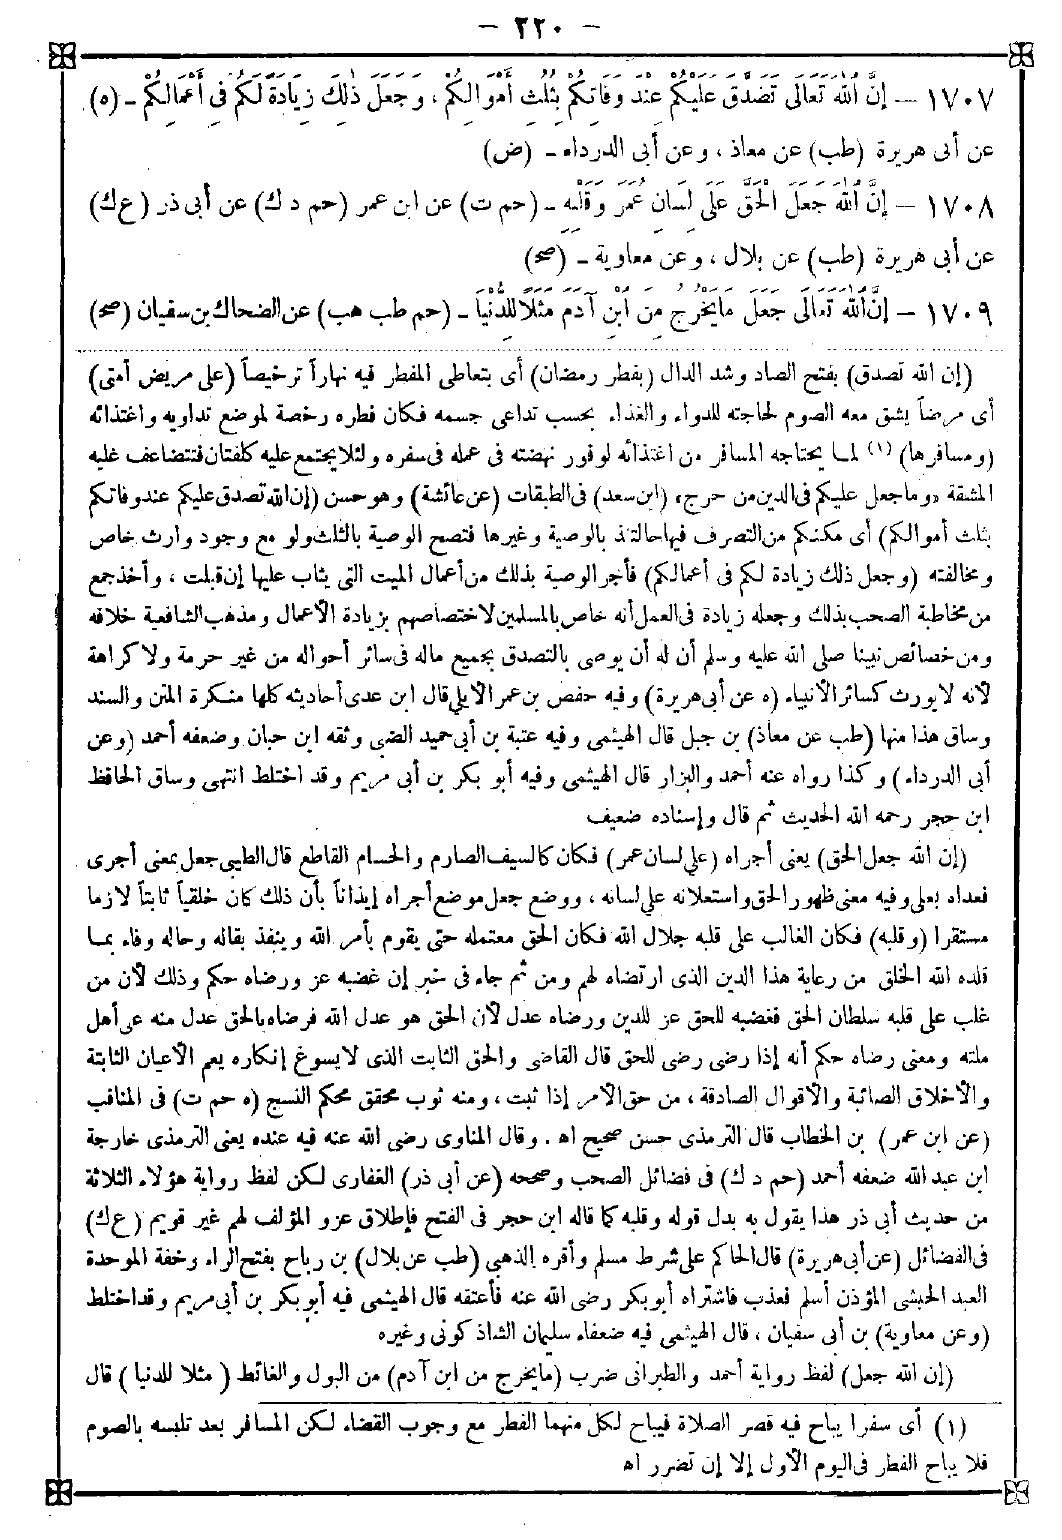 – ٢٢٠ –
١٧٠٧ – إِنَّ ٱللهَ تَعَالَى تَصَدَّقَ عَلَيْكُمْ عِنْدَ وَفَاتِكُمْ بِثُلُثِ أَمْوَالِكُمْ ، وَجَعَلَ ذٰلِكَ زِيَادَةً لَكُمْ فِي أَعْمَالِكُمْ – (ه)
عن أبى هريرة (طب) عن معاذ ، وعن أبى الدرداء – (ض)
١٧٠٨ – إِنَّ ٱللهَ جَعَلَ الْحَقَّ عَلَى لِسَانِ عُمَرَ وَقَلْبِهِ – (حم ت) عن ابن عمر (حم د ك) عن أبى ذر (ع ك)
عن أبى هريرة (طب) عن بلال ، وعن معاوية – (صح)
١٧٠٩ – إِنَّ ٱللهَ تَعَالَى جَعَلَ مَايَخْرُجُ مِنَ ابْنِ آدَمَ مَثَلًا لِلدُّنْيَا – (حم طب هب) عن الضحاك بن سفيان (صح)
(إن الله تصدق) بفتح الصاد وشد الدال (بفطر رمضان) أى بتعاطى المفطر فيه نهاراً ترخيصاً (على مريض أمتى)
أى مرضاً يشق معه الصوم لحاجته للدواء والغذاء بحسب تداعى جسمه فكان فطره رخصة لموضع تداويه واغتذائه
(ومسافرها) (١) لما يحتاجه المسافر من اغتذائه لوفور نهضته فى عمله فى سفره ولئلا يجتمع عليه كلفتان فتتضاعف عليه
المشقة «وما جعل عليكم فى الدين من حرج» (ابن سعد) فى الطبقات (عن عائشة) وهو حسن (إن الله تصدق عليكم عند وفاتكم
بثلث أموالكم) أى مكنكم من التصرف فيها حالتئذ بالوصية وغيرها فتصح الوصية بالثلث ولو مع وجود وارث خاص
ومخالفته (وجعل ذلك زيادة لكم فى أعمالكم) فأجر الوصية بذلك من أعمال الميت التى يثاب عليها إن قبلت ، وأخذ جمع
من مخاطبة الصحب بذلك وجعله زيادة فى العمل أنه خاص بالمسلمين لاختصاصهم بزيادة الأعمال ومذهب الشافعية خلافه
ومن خصائص نبينا صلى الله عليه وسلم أن له أن يوصى بالتصدق بجميع ماله فى سائر أحواله من غير حرمة ولا كراهة
لأنه لا يورث كسائر الأنبياء (ه عن أبى هريرة) وفيه حفص بن عمر الأيلى قال ابن عدى أحاديثه كلها منكرة المتن والسند
وساق هذا منها (طب عن معاذ) بن جبل قال الهيثمى وفيه عتبة بن أبى حميد الضبى وثقه ابن حبان وضعفه أحمد (وعن
أبى الدرداء) وكذا رواه عنه أحمد والبزار قال الهيثمى وفيه أبو بكر بن أبى مريم وقد اختلط انتهى وساق الحافظ
ابن حجر رحمه الله الحديث ثم قال وإسناده ضعيف
(إن الله جعل الحق) يعنى أجراه (على لسان عمر) فكان كالسيف الصارم والحسام القاطع قال الطيبى جعل بمعنى أجرى
فعداه بعلى وفيه معنى ظهور الحق واستعلائه على لسانه ، ووضع جعل موضع أجراه إيذاناً بأن ذلك كان خلقياً ثابتاً لازما
مستقرا (وقلبه) فكان الغالب على قلبه جلال الله فكان الحق معتمله حتى يقوم بأمر الله وينفذ بقاله وحاله وفاء بما
قلده الله الخلق من رعاية هذا الدين الذى ارتضاه لهم ومن ثم جاء فى خبر إن غضبه عز ورضاه حكم وذلك لأن من
غلب على قلبه سلطان الحق فغضبه للحق عز للدين ورضاه عدل لأن الحق هو عدل الله فرضاه بالحق عدل منه على أهل
ملته ومعنى رضاه حكم أنه إذا رضى رضى للحق قال القاضى والحق الثابت الذى لا يسوغ إنكاره يعم الأعيان الثابتة
والأخلاق الصائبة والأقوال الصادقة ، من حق الأمر إذا ثبت ، ومنه ثوب محقق محكم النسج (ه حم ت) فى المناقب
(عن ابن عمر) بن الخطاب قال الترمذى حسن صحيح اه . وقال المناوى رضى الله عنه فيه عنده يعنى الترمذى خارجة
ابن عبد الله ضعفه أحمد (حم د ك) فى فضائل الصحب وصححه (عن أبى ذر) الغفارى لكن لفظ رواية هؤلاء الثلاثة
من حديث أبى ذر هذا يقول به بدل قوله وقلبه كما قاله ابن حجر فى الفتح فإطلاق عزو المؤلف لهم غير قويم (ع ك)
فى الفضائل (عن أبى هريرة) قال الحاكم على شرط مسلم وأقره الذهبى (طب عن بلال) بن رباح بفتح الراء وخفة الموحدة
العبد الحبشى المؤذن أسلم فعذب فاشتراه أبو بكر رضى الله عنه فأعتقه قال الهيثمى فيه أبو بكر بن أبى مريم وقد اختلط
(وعن معاوية) بن أبى سفيان ، قال الهيثمى فيه ضعفاء سليمان الشاذكونى وغيره
(إن الله جعل) لفظ رواية أحمد والطبرانى ضرب (مايخرج من ابن آدم) من البول والغائط (مثلا للدنيا) قال
(١) أى سفرا يباح فيه قصر الصلاة فيباح لكل منهما الفطر مع وجوب القضاء لكن المسافر بعد تلبسه بالصوم
فلا يباح الفطر فى اليوم الأول إلا إن تضرر اه